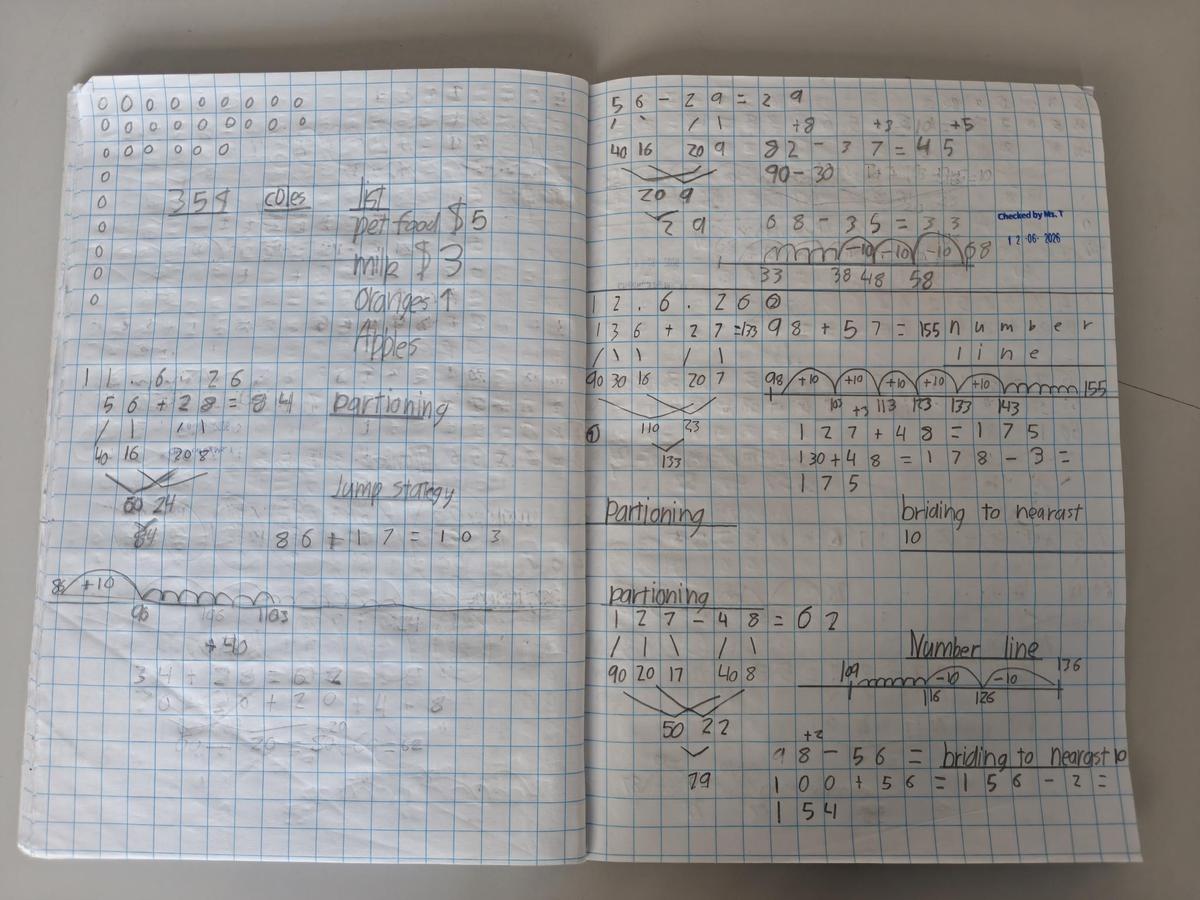 o o o o o o o o o
o o o o o o o o o
o o o o o o
o
o
o
o
o
o
354 coles list
pet food $5
milk $3
oranges ↑
Apples
11.6.26
56+28=84 partioning
40 16 20 8
60 24
84
Jump stategy
86+17=103
86 +10
96 106 103
+40
34+28=62
56-29=29
40 16 20 9
20 9
29
+8 +3 +5
82-37=45
90-30
68-35=33
-10 -10 -10 68
33 38 48 58
Checked by Ms. T
12-06-2026
12.6.26
136+27=133
90 30 16 20 7
110 23
133
①
Partioning
② 98+57=155 number
line
98 +10 +10 +10 +10 +10 155
103 113 123 133 143
+3
127+48=175
130+48=178-3=
175
briding to nearast
10
partioning
127-48=62
90 20 17 40 8
50 22
79
Number line
109 -10 -10 136
116 126
+2
98-56= briding to nearast 10
100+56=156-2=
154